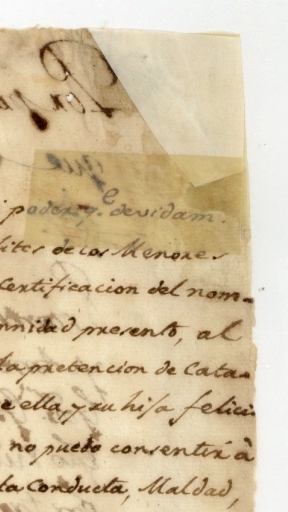 que
poder, q.e devidam.
sites de los Menores
Certificacion del nom-
nnidad presento, al
la pretencion de Cata-
e ella, y su hija felici-
no puedo consentir â
ta Conducta, Maldad,